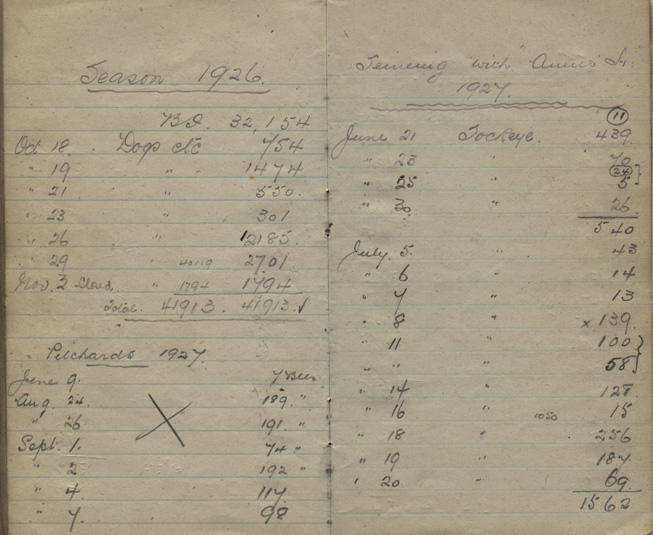 Season 1926.
B.F. 32,154
Oct 18 . Dogs etc 754
" 19 " 1474
" 21 " 550.
" 23 " 301
" 26 " 2185.
" 29 " 40119 2701
Nov. 2 Closed. " 1794 1794
Total. 41913. 41913. ✓
Pilchards 1927.
June 9. 7
Aug. 24. 189. "
" 26 191. "
Sept. 1. 74 "
" 2 192 "
" 4 117
" 7. 98
Seining with
1927.
11
June 21 Sockeye. 439.
" 23 " 70
24
" 25 " 5
" 30 " 26
540
July. 5. " 43
" 6 " 14
" 7 " 13
" 8 " x 139.
" 11 " 100
" " " 58
" 14 " 128.
" 16 " 1050 15
" 18 " 256
" 19 " 187.
" 20 " 69.
1562